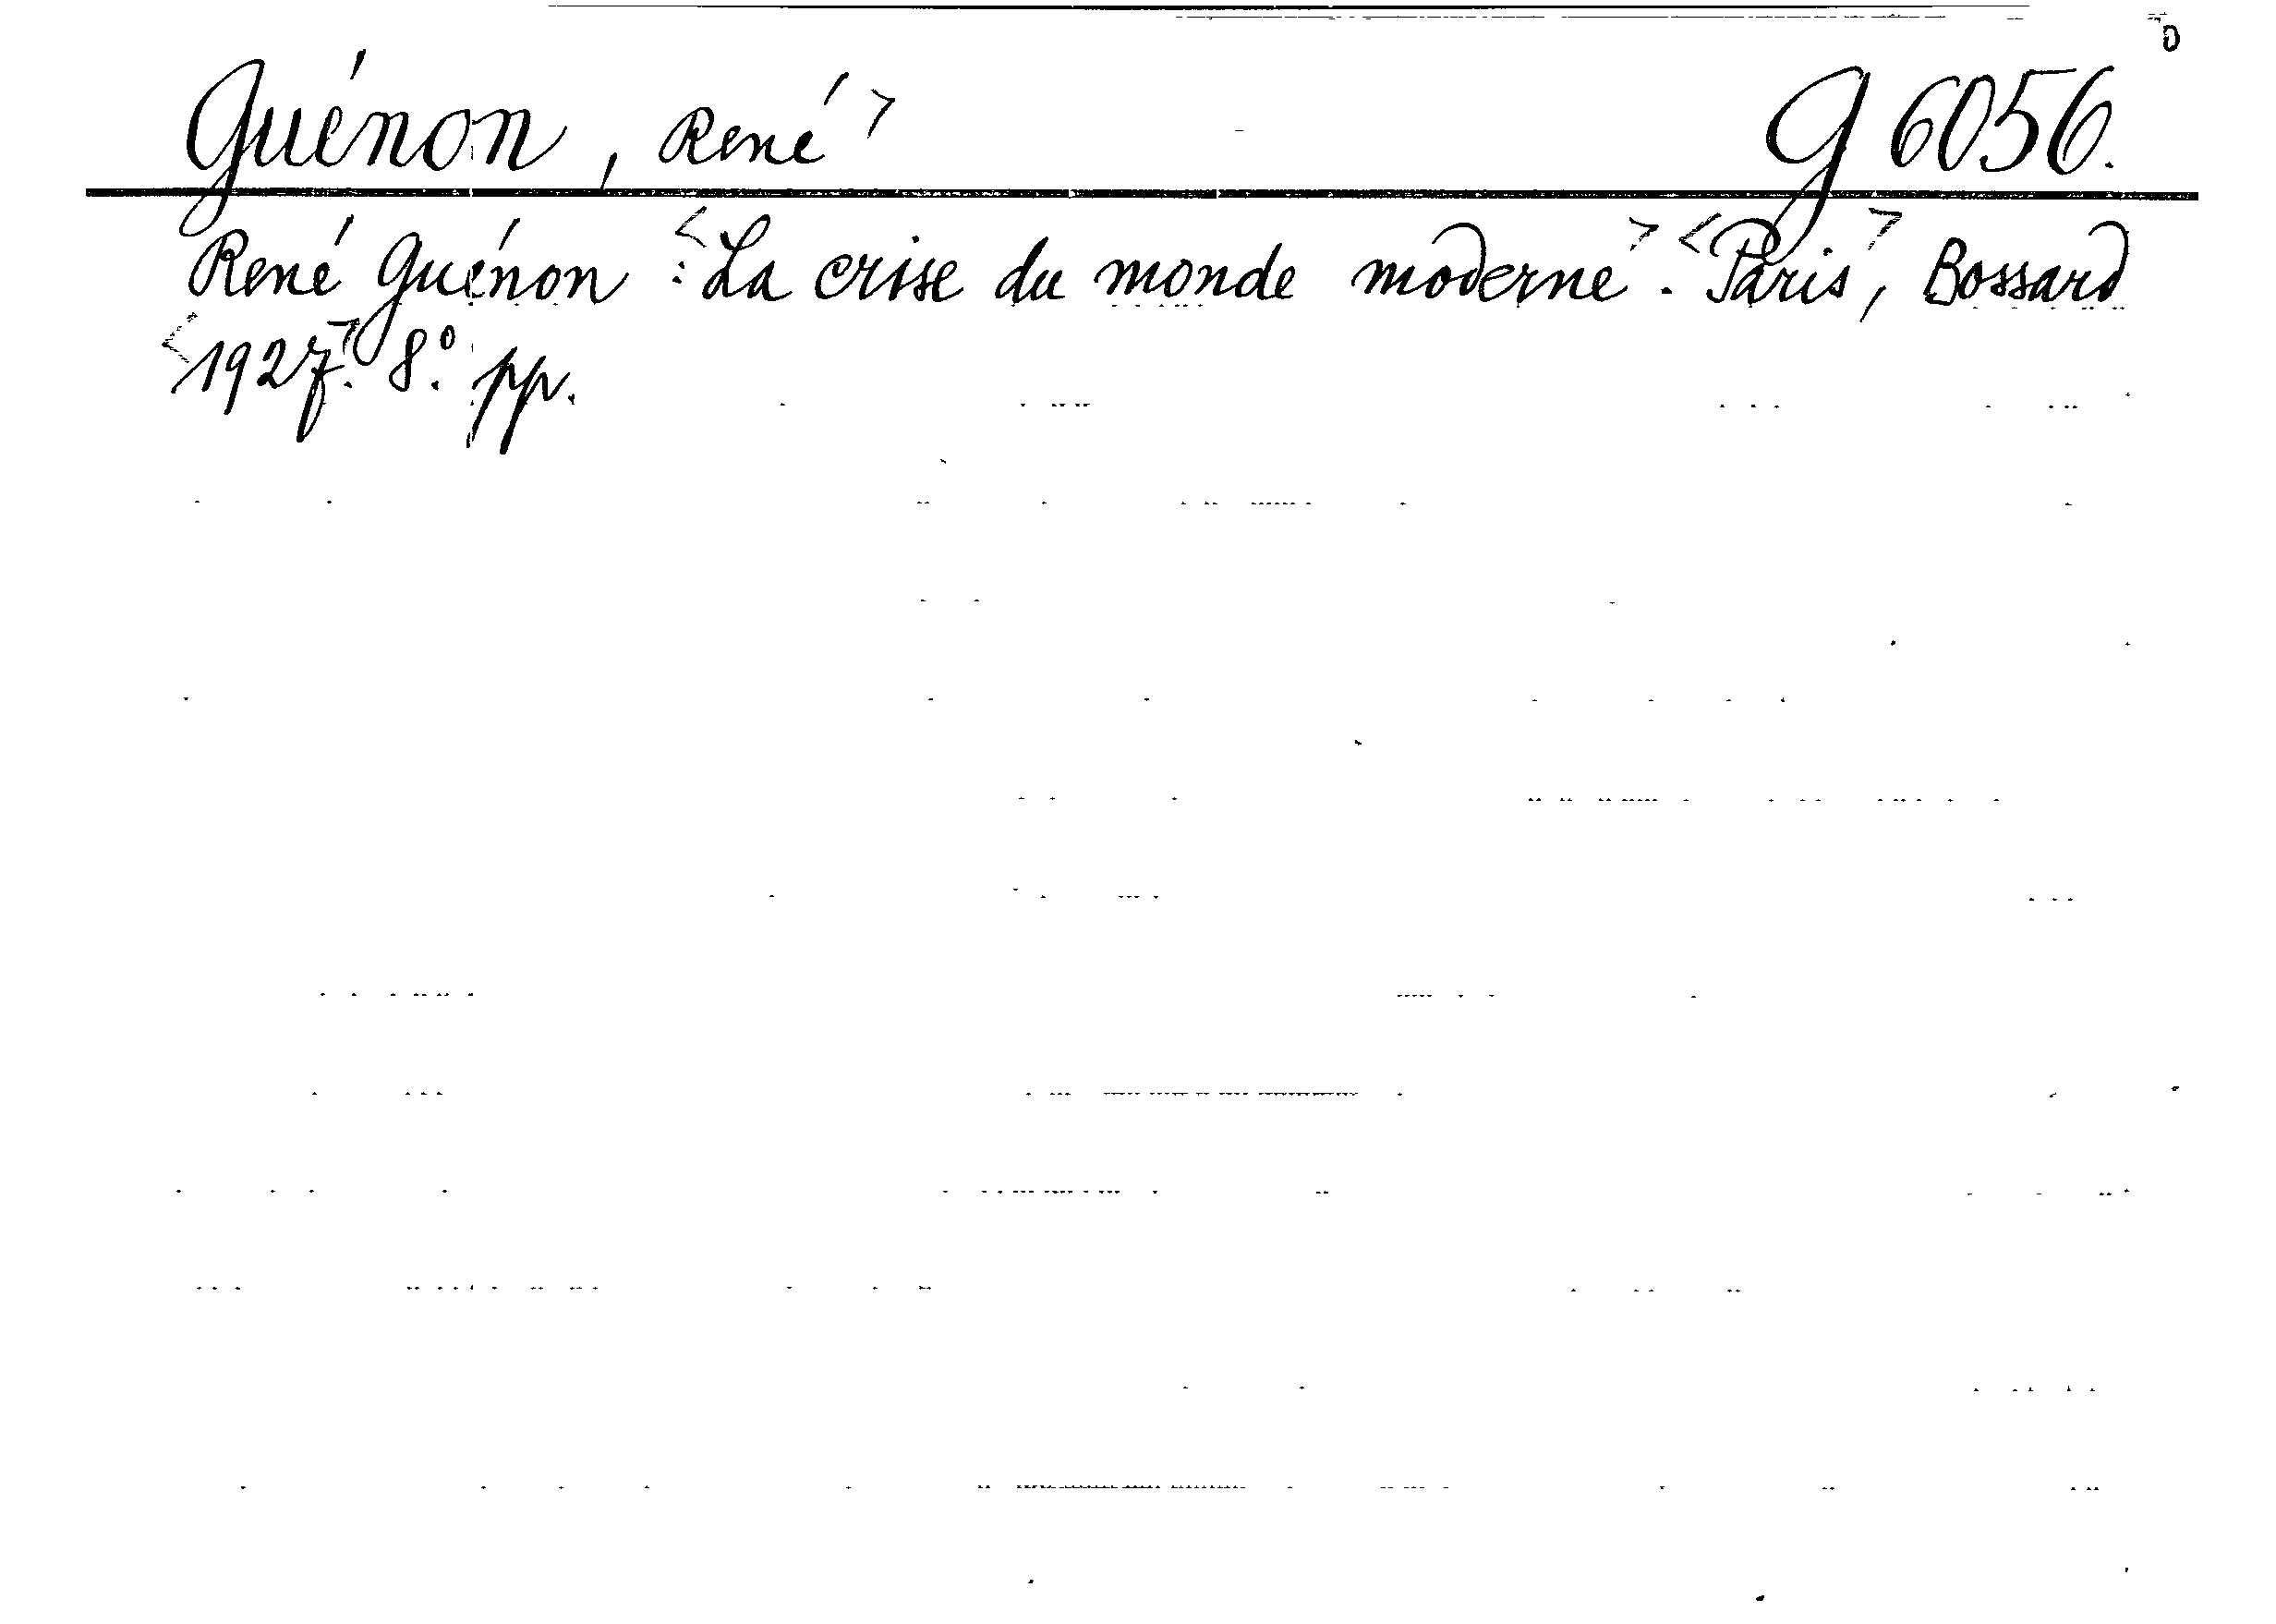 Guénon, René> G 6056.
René Guénon: <La crise du monde moderne>. <Paris>, Bossard
<1927>. 8°. pp.